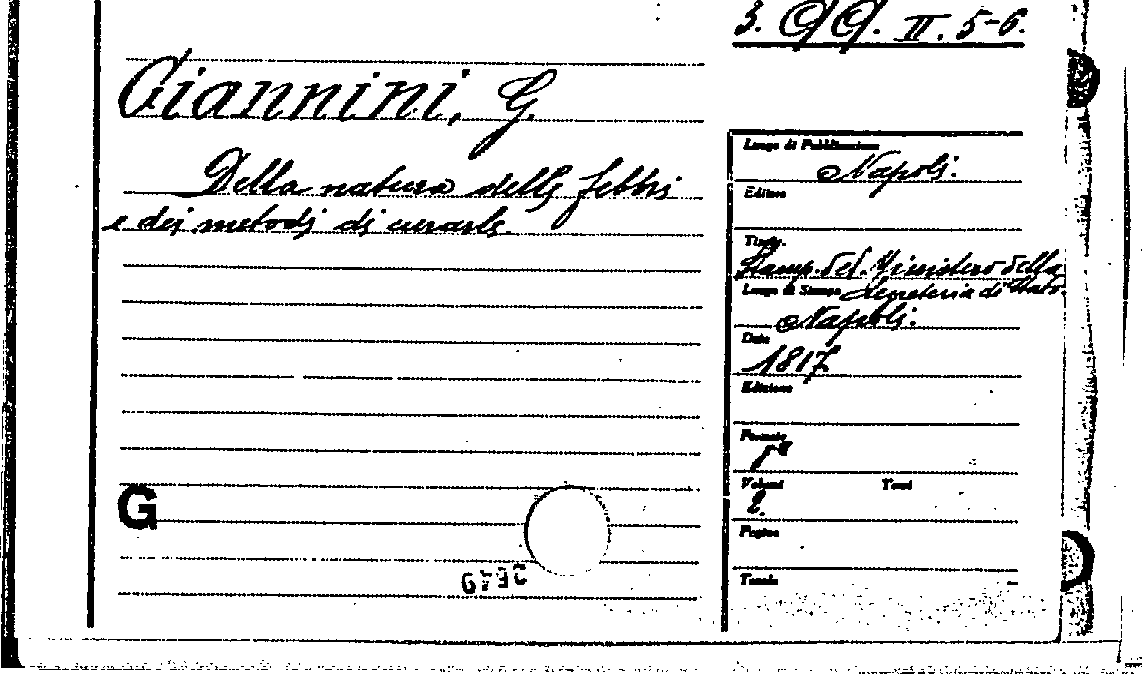 3. QQ. II. 5-6.
Giannini, G.
Della natura delle febbri
e dei metodi di curarle.
Luogo di Pubblicazione
Napoli.
Editore
Tipogr.
Stamp. del Ministero della
Luogo di Stampa Segreteria di Stato
Napoli.
Data
1817
Edizione
Formato
Volumi Tomi
2.
Pagine
Tavole
G